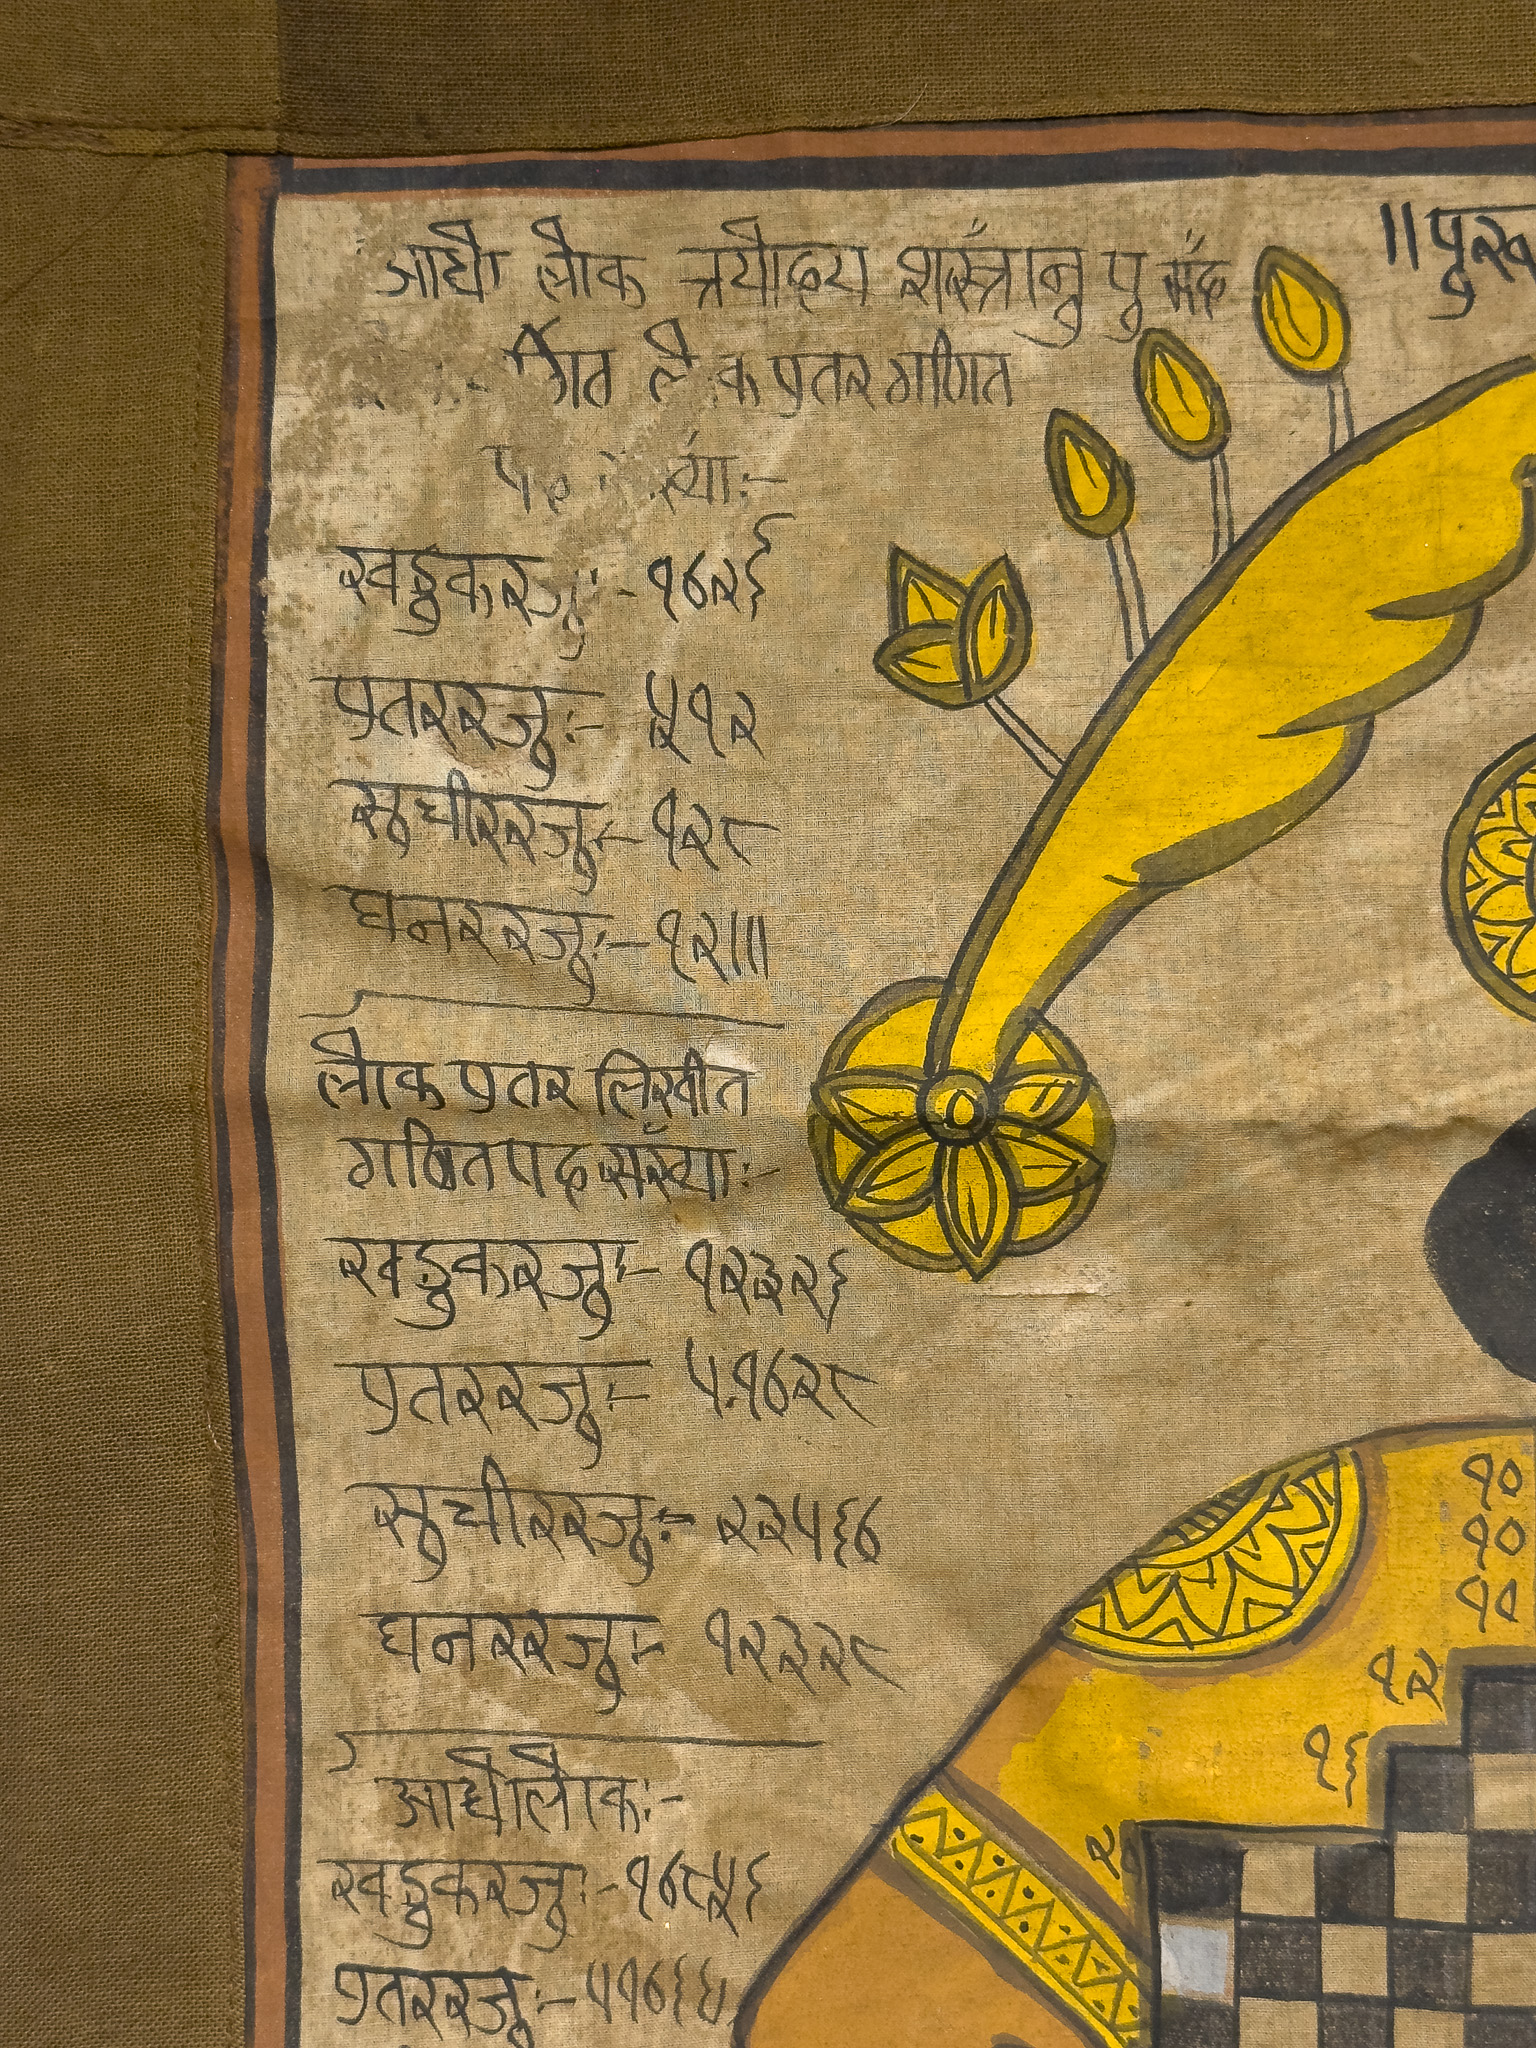 आधौ लौक त्रयोदय शस्त्रानु पु
प्रतर गणित
खडुकरजु:- १८२६
प्रतररजु:- ५१२
सुचीररजु:- १२८
घनररजु:- १२।॥
लौक प्रतर लिखीत
गणितपद संख्या:-
खडुकरजु:- १२३२६
प्रतररजु:- ५१८२८
सुचीररजु:- २२५६८
घनररजु:- १२३२८
आधौलौक:-
खडुकरजु:- १८८५६
प्रतररजु:-
॥ पुरु
१०
१०
१०
१२
१६
२०